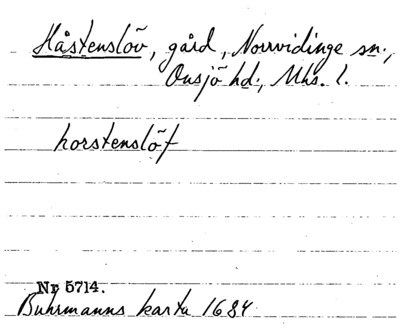 Håstenslöv, gård, Norrvidinge sn.,
Onsjö hd., Mhs. l.
horstenslöf
Nr 5714.
Buhrmanns karta 1684